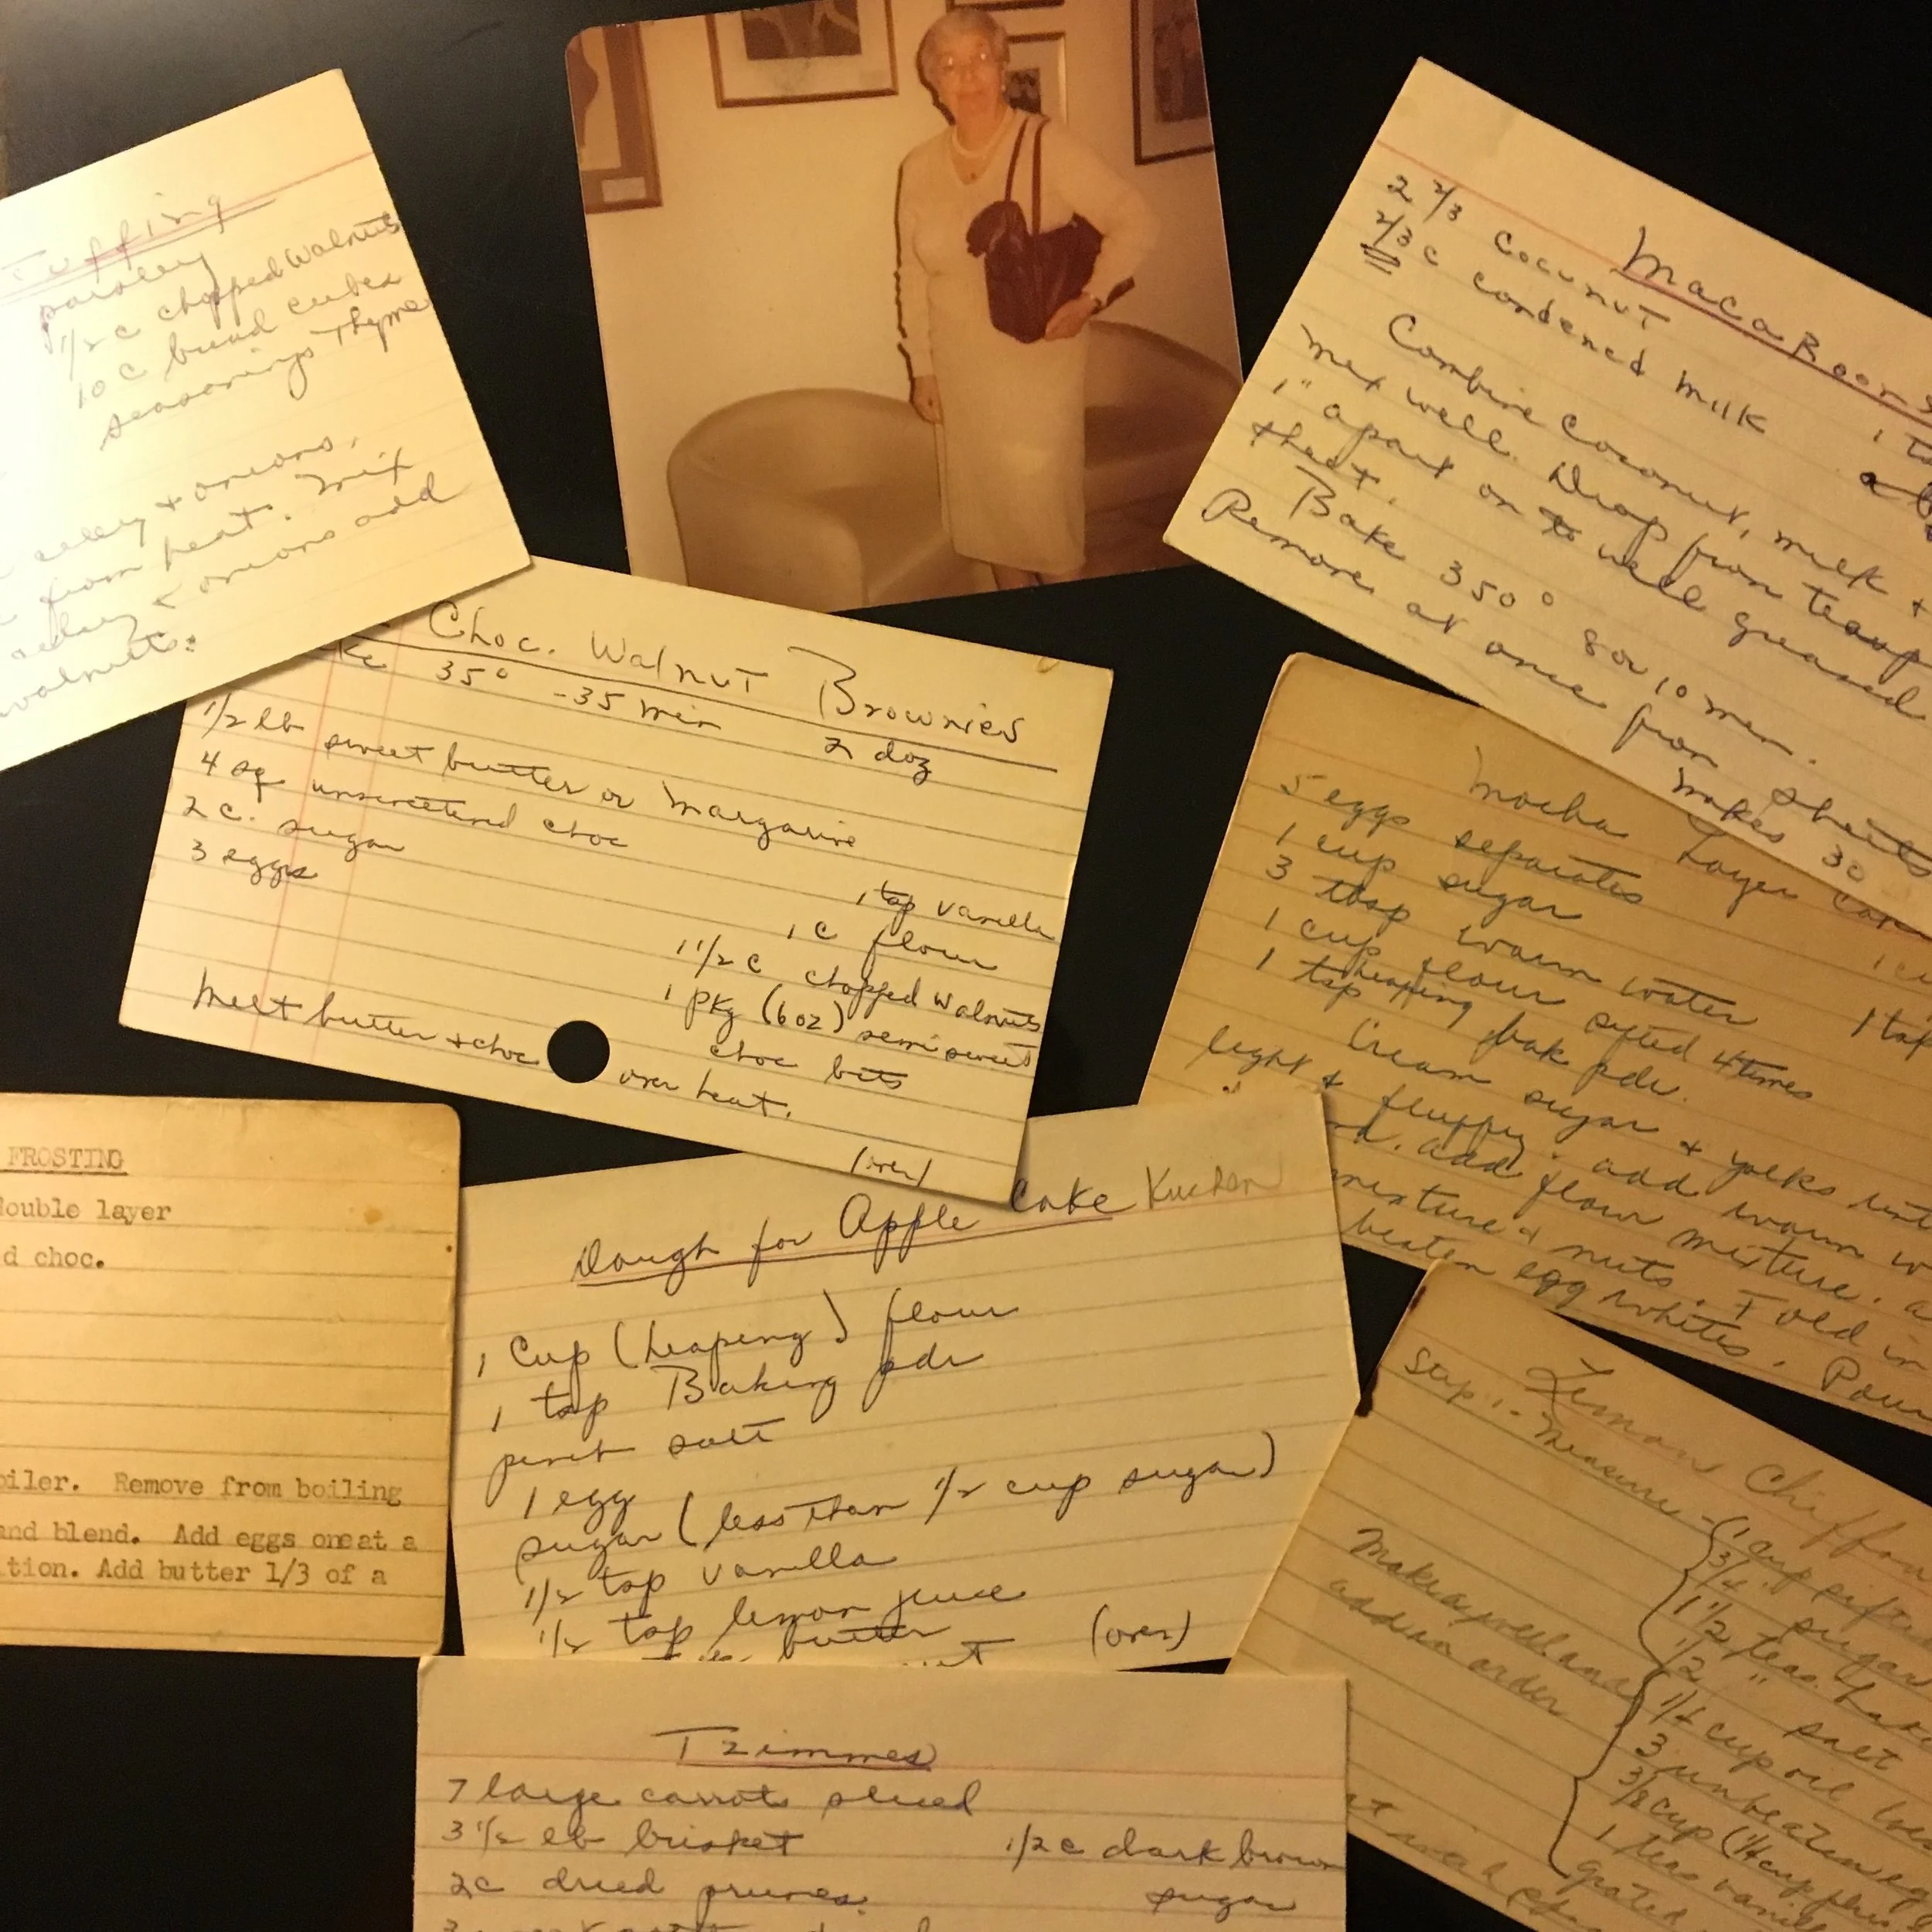 parsley
1/2 c chopped walnuts
10 c bread cubes
seasonings Thyme
celery + onions.
from heat. Mix
celery < onions add
walnuts.
Choc. Walnut Brownies
35° - 35 min 2 doz
1/2 lb sweet butter or margarine
4 sq unsweetened choc
2 c. sugar
3 eggs
1 tsp vanilla
1 c flour
1 1/2 c chopped walnuts
1 pkg (6 oz) semi sweet
choc bits
Melt butter + choc over heat.
(over)
Macaroons
2 2/3 Cocunut
2/3 c condened milk
Combine Coconut, milk +
Mix well. Drop from teasp
1" apart on to well greased
sheet.
Bake 350° 8 or 10 min.
Remove at once from sheets
Makes 30
Mocha Layer
5 eggs separates
1 cup sugar
3 tbsp warm water
1 cup flour sifted 4 times
1 heaping
tsp bak pdr.
1 tsp
Cream sugar + yolks
light + fluffy. add warm
add flour mixture.
mixture + nuts. Fold in
beaten egg whites. Pour
FROSTING
double layer
d choc.
oiler. Remove from boiling
and blend. Add eggs oneat a
tion. Add butter 1/3 of a
Dough for Apple Cake Kuchen
1 Cup (heaping) flour
1 tsp Baking pdr
pinch salt
1 egg
sugar (less than 1/2 cup sugar)
1/2 tsp vanilla
1/2 tsp lemon juice
butter
(over)
Lemon Chiffon
Step 1 - Measure
1 cup sifted
3/4 " sugar
1 1/2 teas.
1/2 " salt
Make a well and
add in order
cup oil
3 unbeaten
cup
1 teas vanilla
grated
Tzimmes
7 large carrots sliced
3 1/2 lb brisket
1/2 c dark brown
sugar
2 c dried prunes